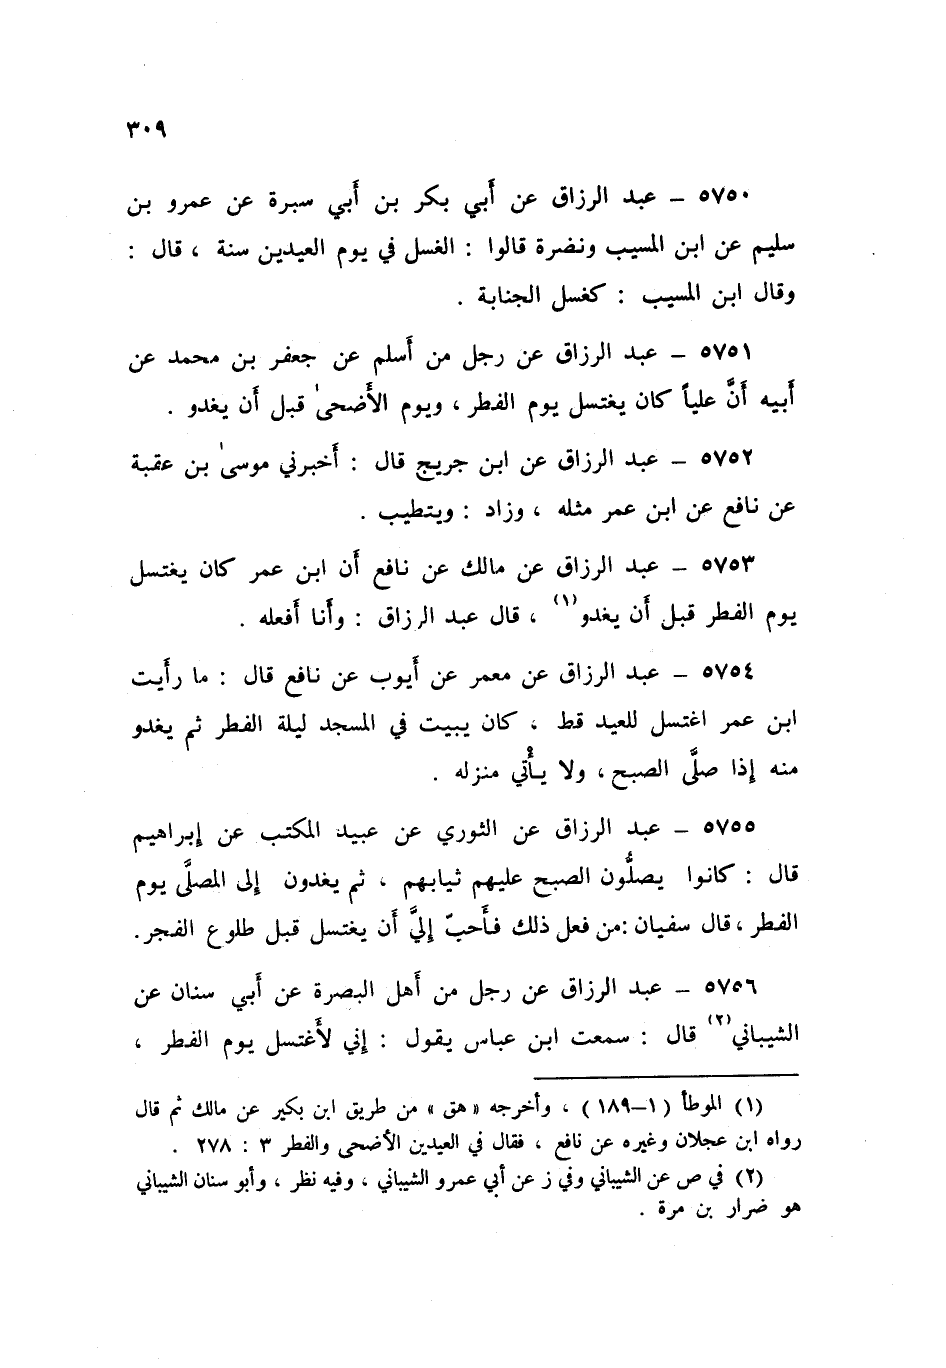 ٣٠٩
٥٧٥٠ – عبد الرزاق عن أبي بكر بن أبي سبرة عن عمرو بن
سليم عن ابن المسيب ونضرة قالوا : الغسل في يوم العيدين سنة ، قال :
وقال ابن المسيب : كغسل الجنابة .
٥٧٥١ – عبد الرزاق عن رجل من أسلم عن جعفر بن محمد عن
أبيه أنَّ علياً كان يغتسل يوم الفطر ، ويوم الأضحىٰ قبل أن يغدو .
٥٧٥٢ – عبد الرزاق عن ابن جريج قال : أخبرني موسىٰ بن عقبة
عن نافع عن ابن عمر مثله ، وزاد : ويتطيب .
٥٧٥٣ – عبد الرزاق عن مالك عن نافع أن ابن عمر كان يغتسل
يوم الفطر قبل أن يغدو(١) ، قال عبد الرزاق : وأنا أفعله .
٥٧٥٤ – عبد الرزاق عن معمر عن أيوب عن نافع قال : ما رأيت
ابن عمر اغتسل للعيد قط ، كان يبيت في المسجد ليلة الفطر ثم يغدو
منه إذا صلَّى الصبح ، ولا يأتي منزله .
٥٧٥٥ – عبد الرزاق عن الثوري عن عبيد المكتب عن إبراهيم
قال : كانوا يصلُّون الصبح عليهم ثيابهم ، ثم يغدون إلى المصلَّى يوم
الفطر ، قال سفيان : من فعل ذلك فأحبّ إليَّ أن يغتسل قبل طلوع الفجر.
٥٧٥٦ – عبد الرزاق عن رجل من أهل البصرة عن أبي سنان عن
الشيباني(٢) قال : سمعت ابن عباس يقول : إني لأغتسل يوم الفطر ،
(١) الموطأ (١–١٨٩) ، وأخرجه «هق» من طريق ابن بكير عن مالك ثم قال
رواه ابن عجلان وغيره عن نافع ، فقال في العيدين الأضحى والفطر ٣ : ٢٧٨ .
(٢) في ص عن الشيباني وفي ز عن أبي عمرو الشيباني ، وفيه نظر ، وأبو سنان الشيباني
هو ضرار بن مرة .